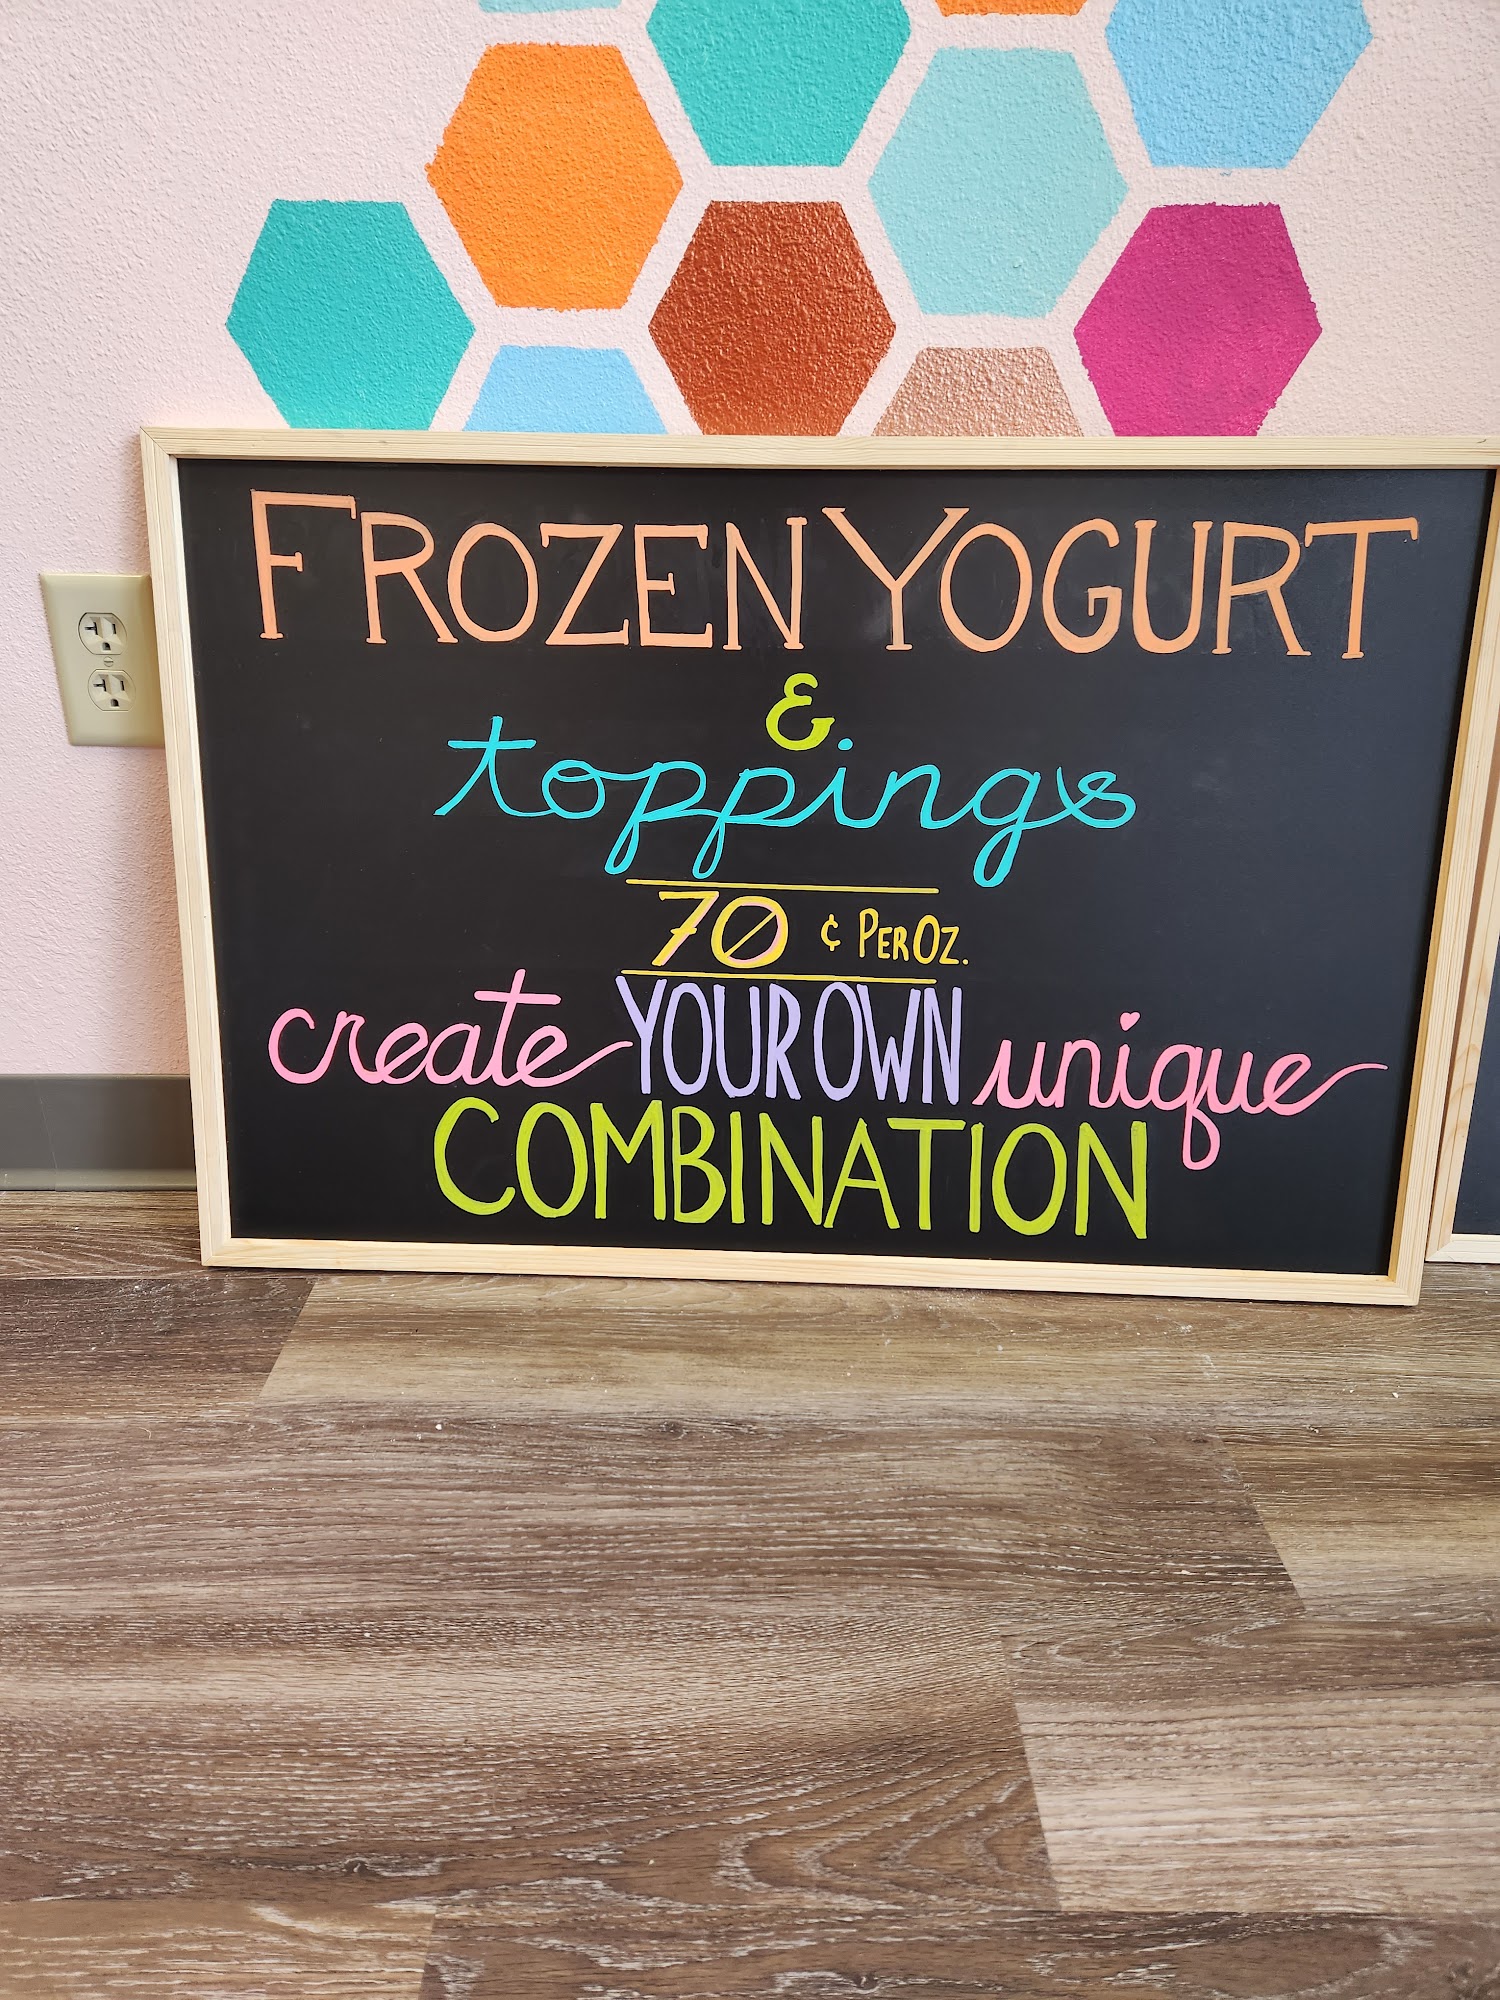 FROZEN YOGURT
&
toppings
70 ¢ PER OZ.
create YOUR OWN unique
COMBINATION